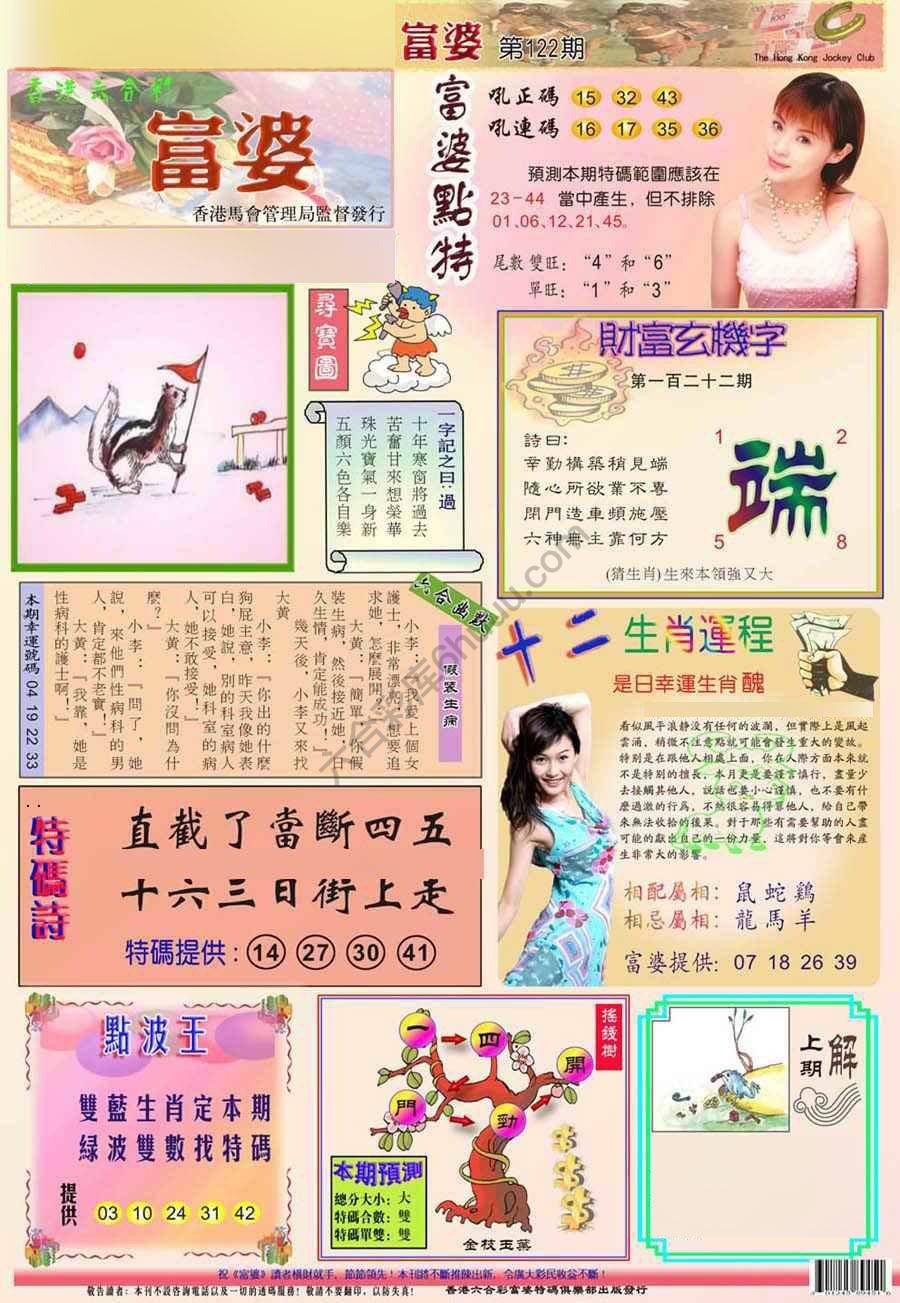 富婆 第122期
The Hong Kong Jockey Club
香港六合彩
富婆
香港馬會管理局監督發行
富婆點特
吼正碼 15 32 43
吼連碼 16 17 35 36
預測本期特碼範圍應該在
23-44 當中產生，但不排除
01、06、12、21、45。
尾數雙旺：“4”和“6”
單旺：“1”和“3”
尋寶圖
一字記之曰：過
十年寒窗將過去
苦奮甘來想榮華
珠光寶氣一身新
五顏六色各自樂
財富玄機字
第一百二十二期
詩曰：
幸勤構築稍見端
隨心所欲業不專
閉門造車頻施壓
六神無主靠何方
1 2
端
5 8
(猜生肖)生來本領強又大
六合幽默
假裝生病
小李：“我愛上個女
護士，非常漂亮，想要追
求她，怎麼展開？”
大黃：“簡單，你假
裝生病，然後接近她，日
久生情，肯定能成功！”
幾天後，小李又來找
大黃
小李：“你出的什麼
狗屁主意，昨天我像她表
白，她說，別的科室病人
可以接受，她科室的病
人，她不敢接受！”
大黃：“你沒問為什
麼？”
小李：“問了，她
說，來他們性病科的男
人，肯定都不老實！”
大黃：“我靠，她是
性病科的護士啊！”
本期幸運號碼 04 19 22 33
十二生肖運程
是日幸運生肖醜
看似風平浪静没有任何的波瀾，但實際上是風起
雲涌，稍微不注意點就可能會發生重大的變故。
特别是在跟他人相處上面，你在人際方面本来就
不是特别的擅長，本月更是要謹言慎行，盡量少
去接觸其他人，説話也要小心謹慎，也不要有什
麽過激的行爲，不然很容易得罪他人，給自己帶
來無法收拾的後果。對于那些有需要幫助的人盡
可能的獻出自己的一份力量，這將對你等會来産
生非常大的影響。
相配屬相：鼠蛇鷄
相忌屬相：龍馬羊
富婆提供：07 18 26 39
特碼詩
直截了當斷四五
十六三日街上走
特碼提供：14 27 30 41
點波王
雙藍生肖定本期
綠波雙數找特碼
提供 03 10 24 31 42
搖錢樹
一 四 開
門 勁
本期預測
總分大小：大
特碼合數：雙
特碼單雙：雙
金枝玉葉
解上期
祝《富婆》讀者橫財就手，節節領先！本刊將不斷推陳出新，令廣大彩民收益不斷！
敬告讀者：本刊不設咨詢電話以及一切的透碼服務！敬請不要翻印，以防失真！ 香港六合彩富婆特碼俱樂部出版發行